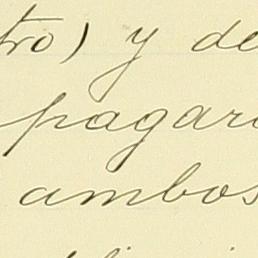 tro) y de
pagar
ambos